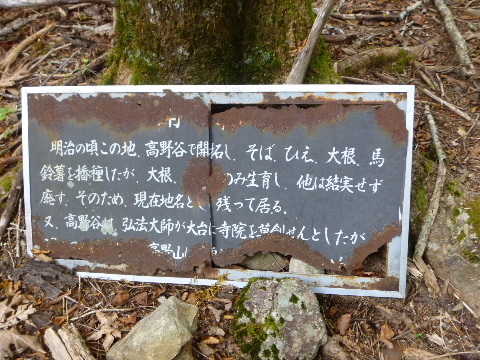 明治の頃この地、高野谷で開拓し、そば、ひえ、大根、馬
鈴薯を播種したが、大根、のみ生育し、他は結実せず
廃す、そのため、現在地名として残って居る。
又、高野谷は、弘法大師が大台に寺院を草創せんとしたが
高野山に